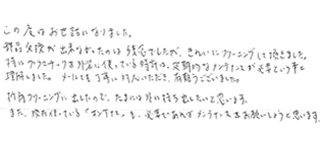 この度はお世話になりました。
部品交換が出来なかったのは残念でしたが、きれいにクリーニングして頂きました。
特にアンティークを外気に使っている時計は、定期的なメンテナンスが必要という事を
理解しました。メールにも丁寧に対応いただき、有難うございました。
折角クリーニングに出したので、たまには外に持ち出したいと思います。
また、現在使っている「オメガ」も、必要であればメンテナンスをお願いしようと思います。